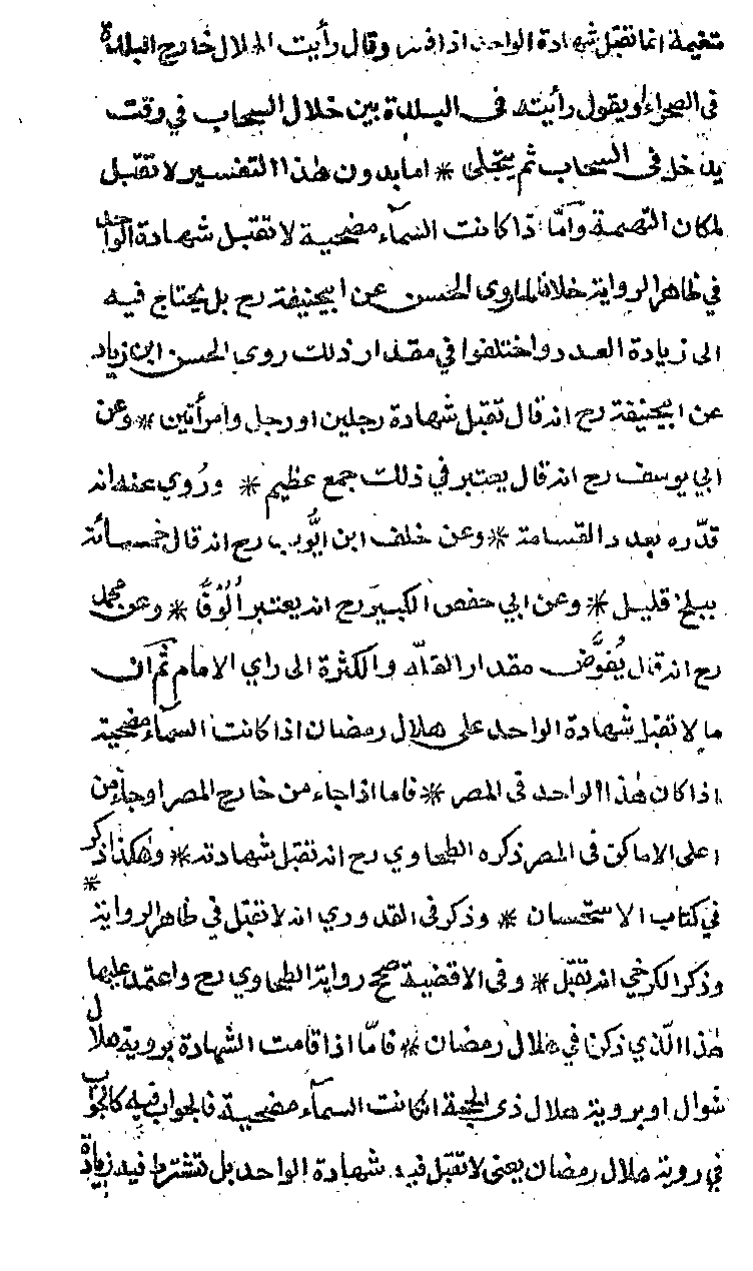 متغيمة انما تقبل شهادة الواحد اذا فسر وقال رأيت الهلال خارج البلدة
في الصحراء او يقول رأيته في البلدة بين خلال السحاب في وقت
يدخل في السحاب ثم يتجلى * اما بدون هذا التفسير لا تقبل
لمكان التهمة وأمّا اذا كانت السمآء مضحية لا تقبل شهادة الواحد
في ظاهر الرواية خلافا لما روى الحسن عن ابيحنيفة رح بل يحتاج فيه
الى زيادة العدد واختلفوا في مقدار ذلك روى الحسن ابن زياد
عن ابيحنيفة رح انه قال تقبل شهادة رجلين او رجل وامرأتين * وعن
ابي يوسف رح انه قال يعتبر في ذلك جمع عظيم * ورُوي عنه انه
قدّره بعدد القسامة * وعن خلف ابن ايُّوب رح انه قال خمسمائة
ببلخ قليل * وعن ابي حفص الكبير رح انه يعتبر أُلُوْفًا * وعن محمد
رح انه قال يُفوَّض مقدار القلة والكثرة الى راي الامام ثم ان
ما لا تقبل شهادة الواحد على هلال رمضان اذا كانت السمآء مضحية
اذا كان هذا الواحد في المصر * فاما اذا جاء من خارج المصر او جاء من
اعلى الاماكن في المصر ذكره الطحاوي رح انه تقبل شهادته * وهكذا ذكر
في كتاب الاستحسان * وذكر في القدوري انه لا تقبل في ظاهر الرواية
وذكر الكرخي انه تقبل * وفي الاقضية صحح رواية الطحاوي رح واعتمد عليها
هذا الّذي ذكرنا في هلال رمضان * فامّا اذا قامت الشهادة بروية هلال
شوال او بروية هلال ذى الحجة ان كانت السمآء مضحية فالجواب فيه كالجواب
في روية هلال رمضان يعنى لا تقبل فيه شهادة الواحد بل تشترط فيه زيادة